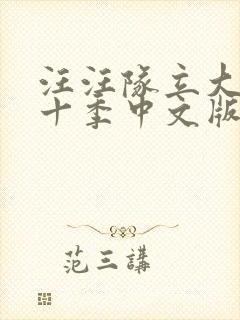 汪汪队立大
十季中文版
范三講